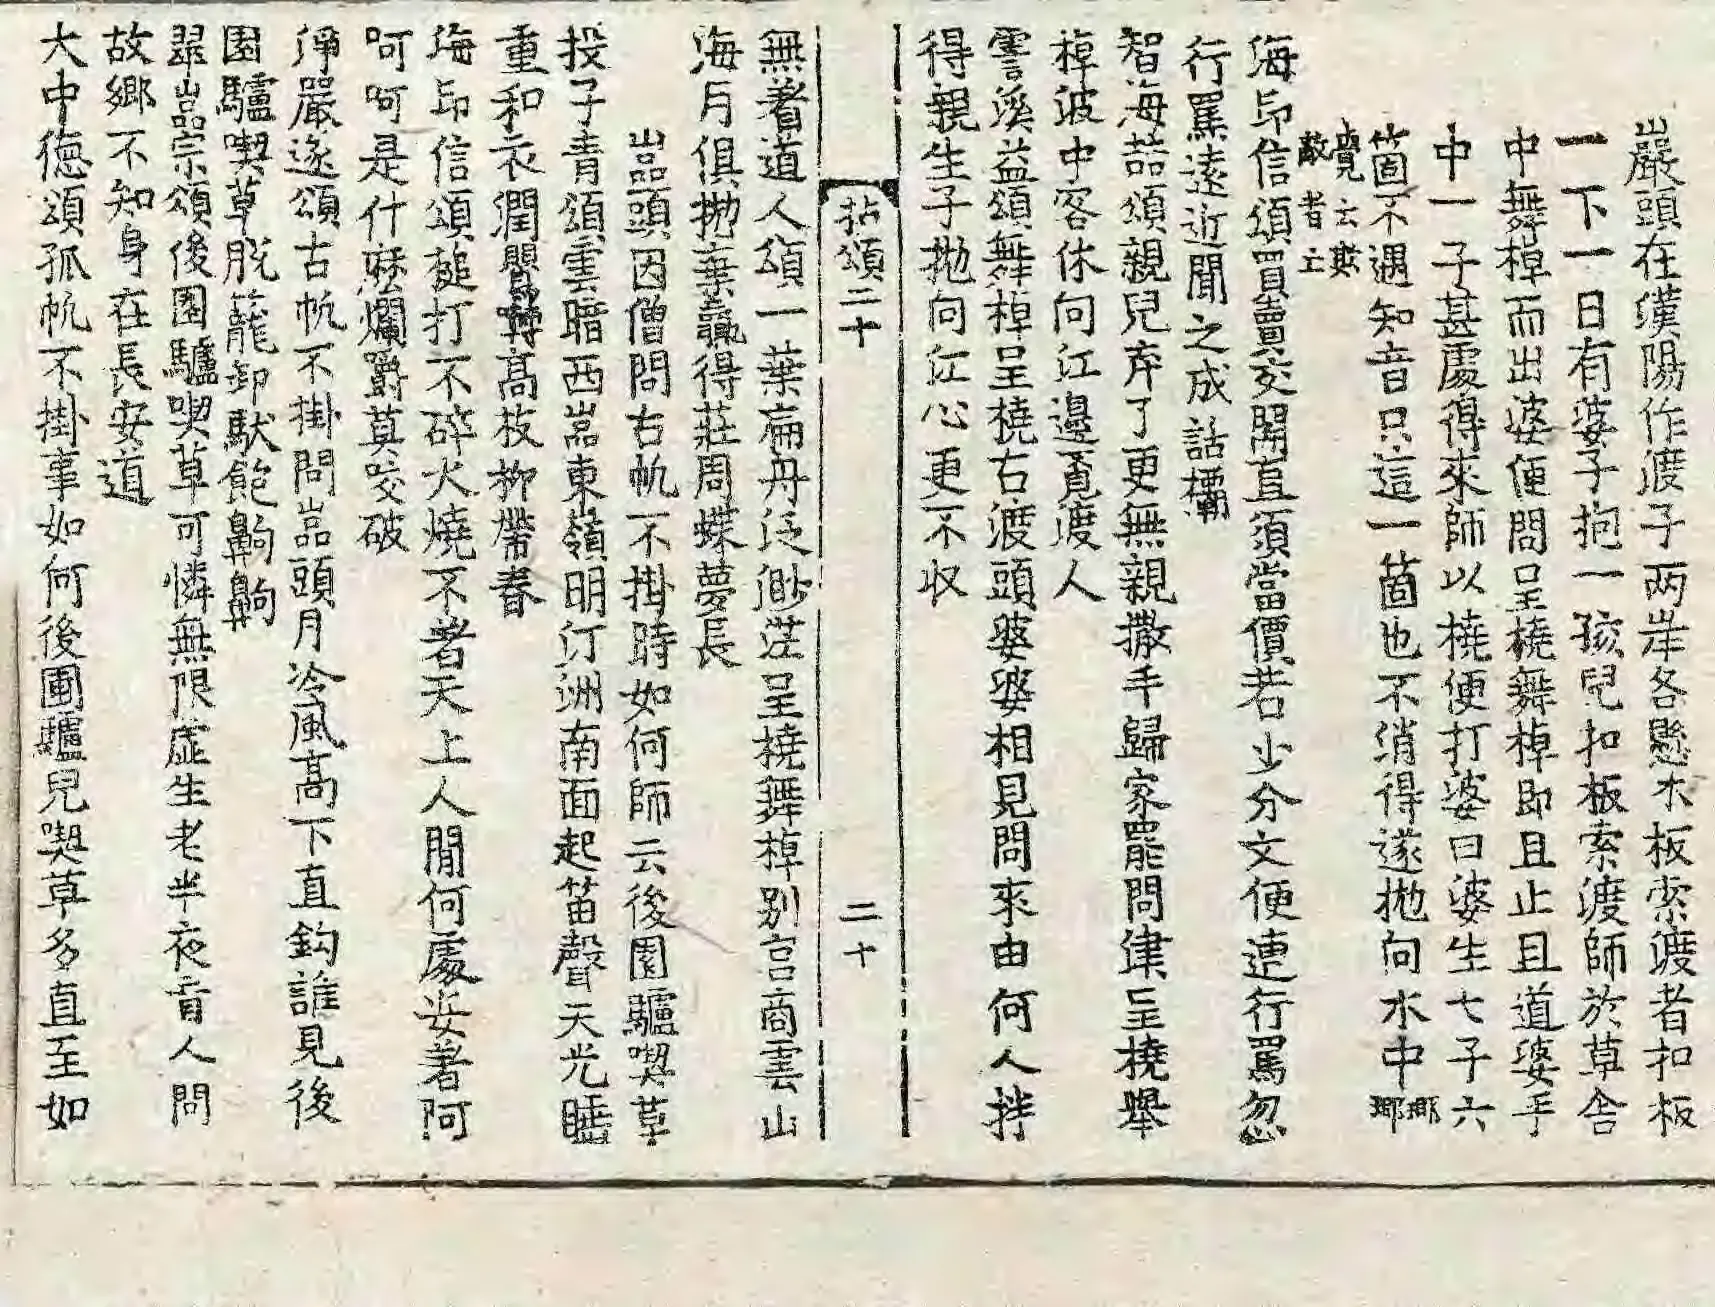 巖頭在漢陽作渡子两岸各懸木板索渡者扣板
一下一日有婆子抱一孩兒扣板索渡師於草舍
中舞棹而出婆便問呈橈舞棹即且止且道婆手
中一子甚處得來師以橈便打婆曰婆生七子六
箇不遇知音只這一箇也不消得遂抛向水中
海印信頌買賣交關直須當價若少分文便遭行罵忽
行罵遠近聞之成話欛
智海喆頌親兒弃了更無親撒手歸家罷問津呈橈舉
棹波中客休向江邊覓渡人
霅溪益頌舞棹呈橈古渡頭婆婆相見問來由何人拌
得親生子抛向江心更不收
拈頌二十 二十
無着道人頌一葉扁舟泛渺茫呈橈舞棹别宫商雲山
海月俱抛棄贏得莊周蝶夢長
嵓頭因僧問古帆不掛時如何師云後園驢喫草
投子青頌雲暗西嵓東嶺明汀洲南面起笛聲天光睡
重和衣潤鸎囀高枝柳帶春
海印信頌搥打不碎火燒不著天上人間何處安著阿
呵呵是什麽爛嚼莫咬破
淨嚴遂頌古帆不掛問嵓頭月冷風髙下直鈎誰見後
園驢喫草脫籠卸馱飽齁齁
翠嵓宗頌後園驢喫草可憐無限虛生老半夜盲人問
故郷不知身在長安道
大中德頌孤帆不掛事如何後圃驢兒喫草多直至如